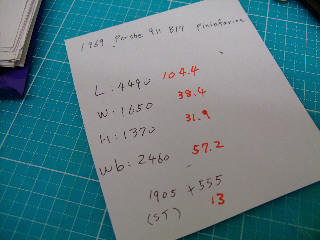 1969 Porshe 911 B17 Pininfarina
L : 4490 104.4
W : 1650 38.4
H : 1370 31.9
Wb : 2460 57.2
1905 + 555
(ST) 13